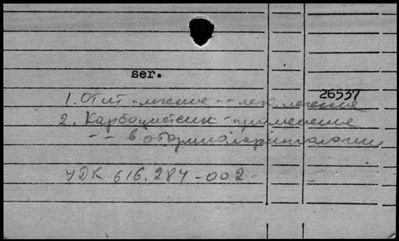 ser.
26537
1. Отит - лечение -- лек. лечение
2. Карбоцистеин - применение
-- в оториноларингологии
УДК 616.284-002-